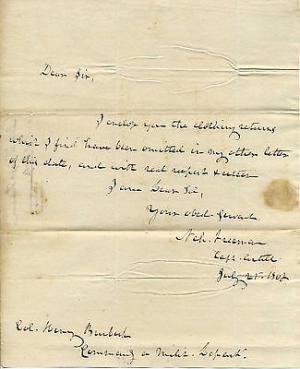 Dear Sir,
I enclose you the clothing returns
which I find have been omitted in my other letter
of this date, and with real respect & esteem
I am Dear Sir,
Your obed. Servant
Neh. Freeman
Capt. Artill.
July 25. 1807
Col. Henry Burbeck
Command. Milit. Departt.